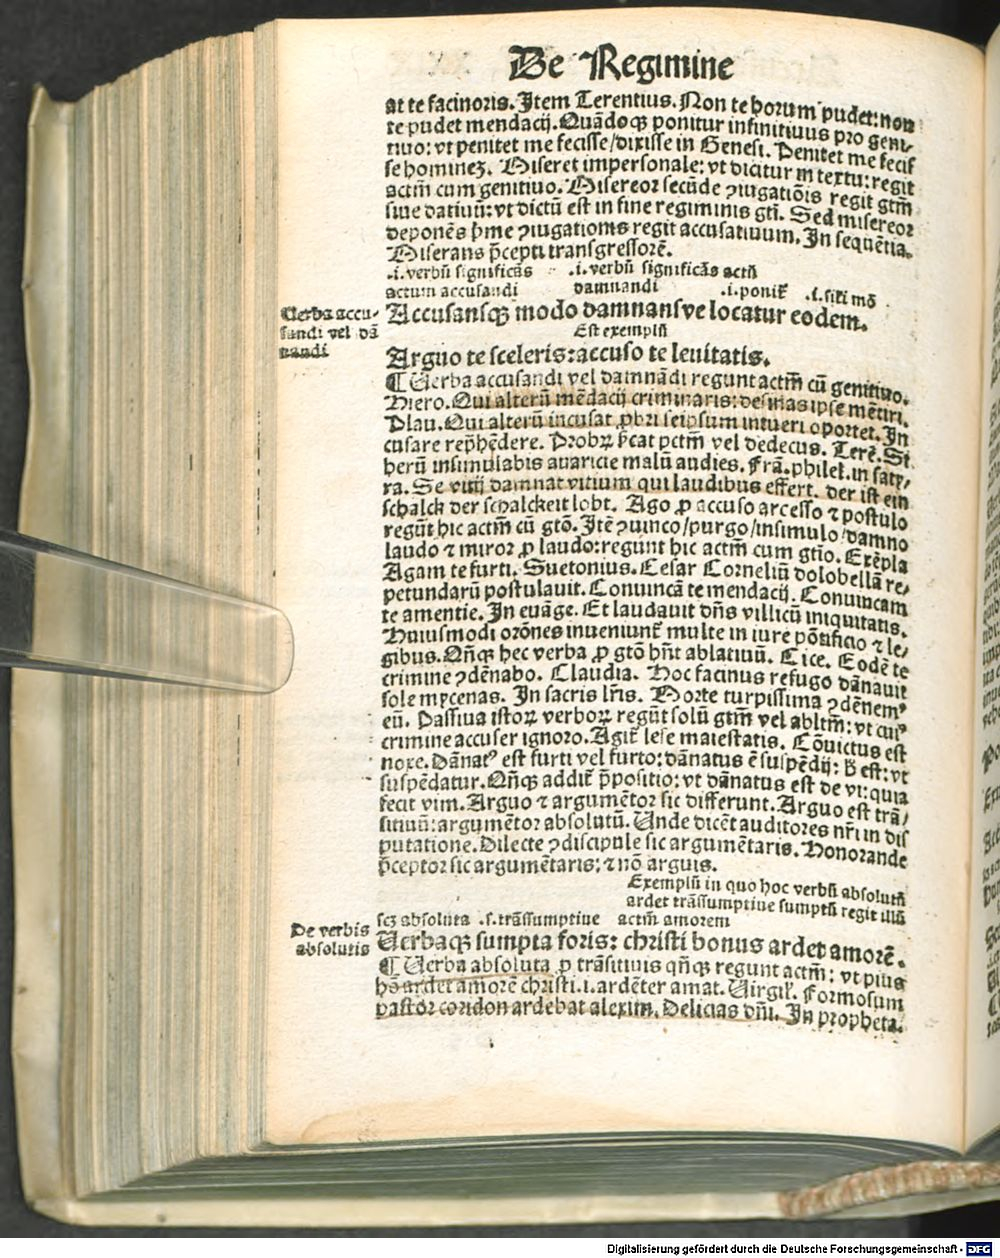 De Regimine
at te facinoris. Item Terentius. Non te horum pudet: non
te pudet mendacij. Quãdoqꝫ ponitur infinitiuus pro geni/
tiuo: vt penitet me fecisse/dixisse in Genesi. Penitet me fecis
se homineꝫ. Miseret impersonale: vt dicitur in textu: regit
actm̃ cum genitiuo. Misereor secũde ꝯiugatiõis regit gtm̃
siue datiuũ: vt dictũ est in fine regiminis gti. Sed misereor
deponẽs p̃me ꝯiugationis regit accusatiuum. In sequẽtia.
Miserans p̃cepti transgressorẽ.
.i. verbũ significãs .i. verbũ significãs actũ
actum accusandi damnandi .i. ponit᷑ .i. sili mõ
Verba accu-
sandi vel dã
nandi
Accusansqꝫ modo damnansve locatur eodem.
Est exemplũ
Arguo te sceleris: accuso te leuitatis.
¶ Verba accusandi vel damnãdi regunt actm̃ cũ genitiuo.
Hiero. Qui alterũ mẽdacij criminaris: desinas ipse mẽtiri.
Plau. Qui alterũ incusat ꝓbri seipsum intueri oportet. In
cusare rep̃hẽdere. Probꝝ p̃cat pctm̃ vel dedecus. Terẽ. Si
herũ insimulabis auaricie malũ audies. Frã. philel. in saty/
ra. Se vitij damnat vitium qui laudibus effert. der ist ein
schalck der schalckeit lobt. Ago ꝓ accuso arcesso ⁊ postulo
regũt hic actm̃ cũ gtõ. Itẽ ꝯuinco/purgo/insimulo/damno
laudo ⁊ miror ꝓ laudo: regunt hic actm̃ cum gtĩo. Exẽpla
Agam te furti. Suetonius. Cesar Corneliũ dolobellã re/
petundarũ postulauit. Conuincã te mendacij. Conuincam
te amentie. In euãge. Et laudauit dñs villicũ iniquitatis.
Huiusmodi orõnes inueniunt᷑ multe in iure põtificio ⁊ le/
gibus. Qñqꝫ hec verba ꝓ gtõ hñt ablatiuũ. Cice. Eodẽ te
crimine ꝯdẽnabo. Claudia. Hoc facinus refugo dãnauit
sole mycenas. In sacris lr̃is. Morte turpissima ꝯdẽnemꝰ
eũ. Passiua istoꝝ verboꝝ regũt solũ gtm̃ vel abltm̃: vt cuiꝰ
crimine accuser ignoro. Agit᷑ lese maiestatis. Cõuictus est
noxe. Dãnatꝰ est furti vel furto: dãnatus ẽ suspẽdij: ħ est: vt
suspẽdatur. Qñqꝫ addit᷑ p̃positio: vt dãnatus est de vi: quia
fecit vim. Arguo ⁊ argumẽtor sic differunt. Arguo est trã/
sitiuũ: argumẽtor absolutũ. Unde dicẽt auditores nr̃i in dis
putatione. Dilecte ꝯdiscipule sic argumẽtaris. Honorande
p̃ceptor sic argumẽtaris: ⁊ nõ arguis.
Exemplũ in quo hoc verbũ absolutũ
ardet trãssumptiue sumptũ regit illũ
scꝫ absoluta .s. trãssumptiue actm̃ amorem
De verbis
absolutis
Verbaqꝫ sumpta foris: christi bonus ardet amorẽ.
¶ Verba absoluta ꝓ trãsitiuis qñqꝫ regunt actm̃: vt pius
hõ ardet amorẽ christi .i. ardẽter amat. Virgil᷑. Formosum
pastor coridon ardebat alexim. Delicias dñi. In propheta.
Digitalisierung gefördert durch die Deutsche Forschungsgemeinschaft - DFG